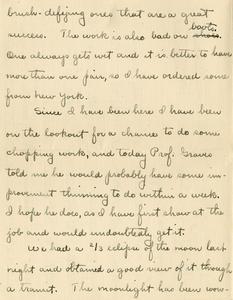 brush-defying ones that are a great
success. The work is also bad on shoes. boots.
One always gets wet and it is better to have
more than one pair, so I have ordered some
from New York.
Since I have been here I have been
on the lookout for a chance to do some
chopping work, and today Prof. Graves
told me he would probably have some im-
provement thinning to do within a week.
I hope he does, as I have first show at the
job and would undoubtedly get it.
We had a 2/3 eclipse of the moon last
night and obtained a good view of it through
a transit. The moonlight has been won-